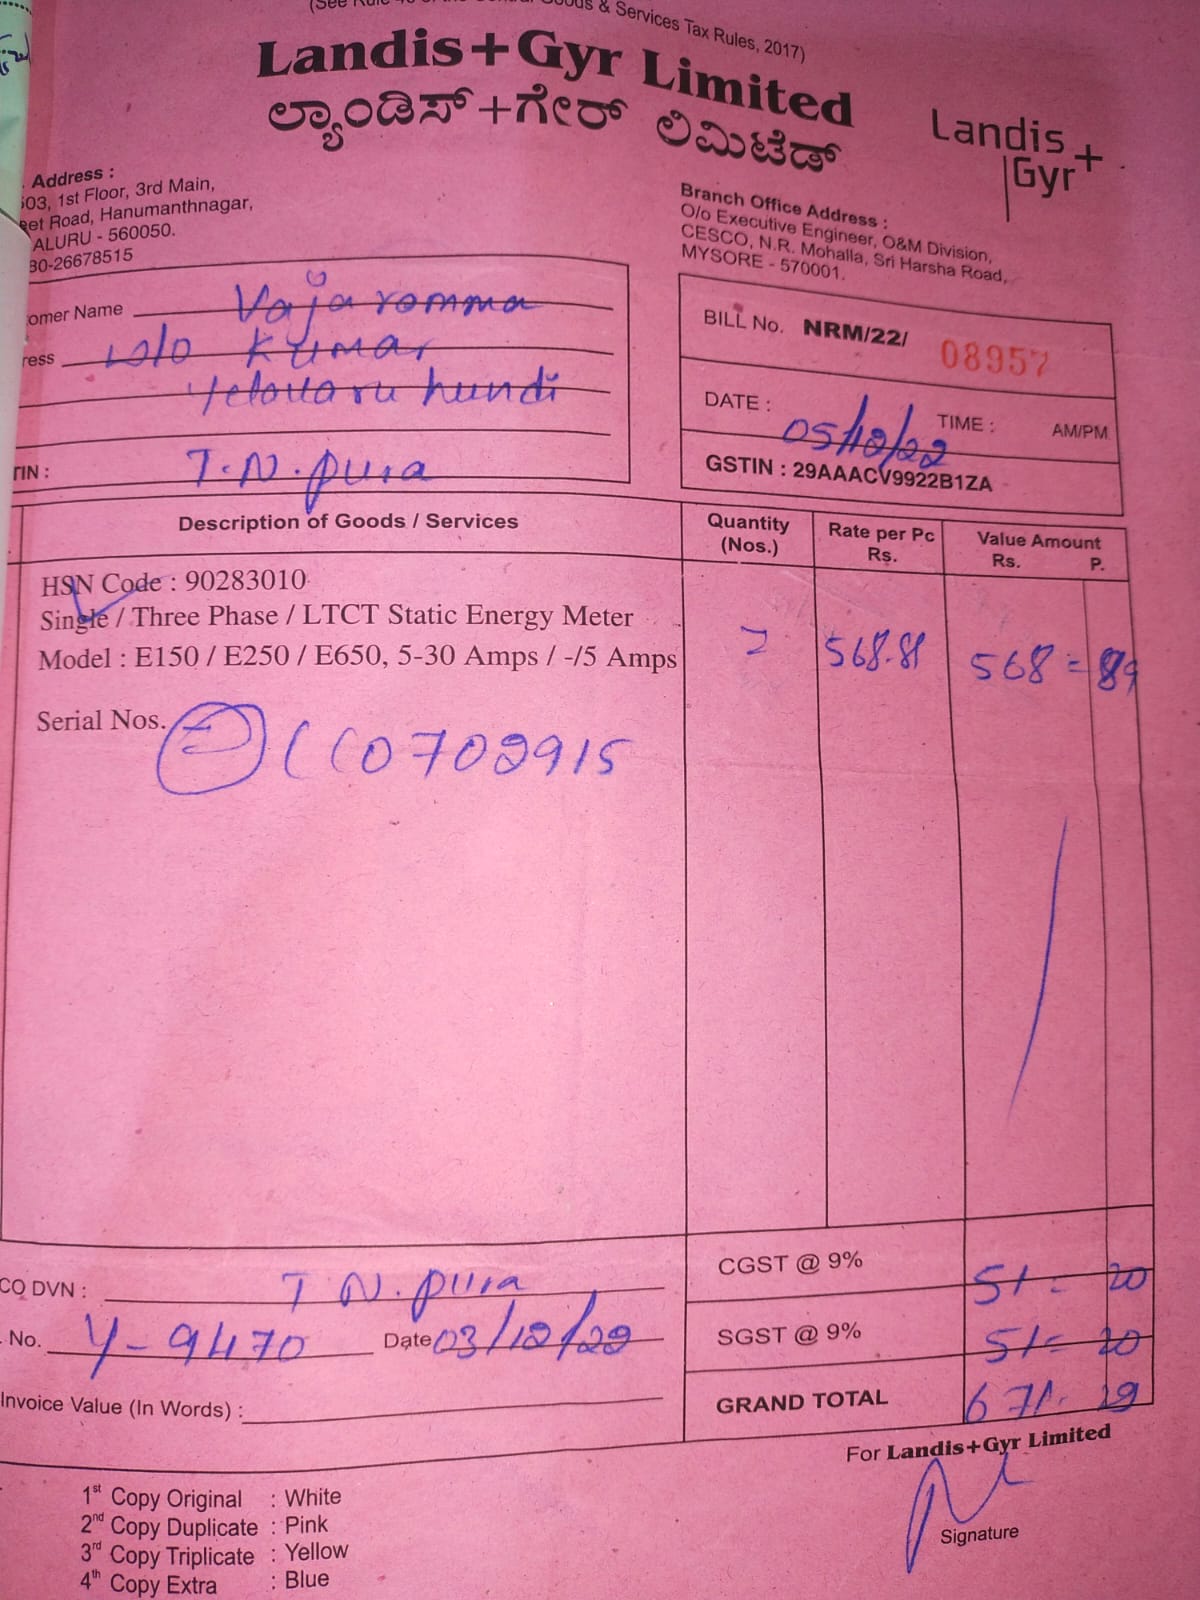 & Services Tax Rules, 2017)
Landis+Gyr Limited
ಲ್ಯಾಂಡಿಸ್+ಗೇರ್ ಲಿಮಿಟೆಡ್
Landis+
Gyr
Address :
03, 1st Floor, 3rd Main,
eet Road, Hanumanthnagar,
ALURU - 560050.
80-26678515
Branch Office Address :
O/o Executive Engineer, O&M Division,
CESCO, N.R. Mohalla, Sri Harsha Road,
MYSORE - 570001.
omer Name Vajaramma
ress w/o Kumar
hundi
TIN : T.N.pura
BILL No. NRM/22/ 08957
DATE : 05/12/22 TIME : AM/PM
GSTIN : 29AAACV9922B1ZA
Description of Goods / Services Quantity (Nos.) Rate per Pc Rs. Value Amount Rs. P.
HSN Code : 90283010
Single / Three Phase / LTCT Static Energy Meter
Model : E150 / E250 / E650, 5-30 Amps / -/5 Amps 568.89 568=89
Serial Nos. 0702915
CO DVN : T N.pura
No. Y-9470 Date 03/12/22
Invoice Value (In Words) :
CGST @ 9% 51=20
SGST @ 9% 51=20
GRAND TOTAL 671-29
For Landis+Gyr Limited
Signature
1st Copy Original : White
2nd Copy Duplicate : Pink
3rd Copy Triplicate : Yellow
4th Copy Extra : Blue